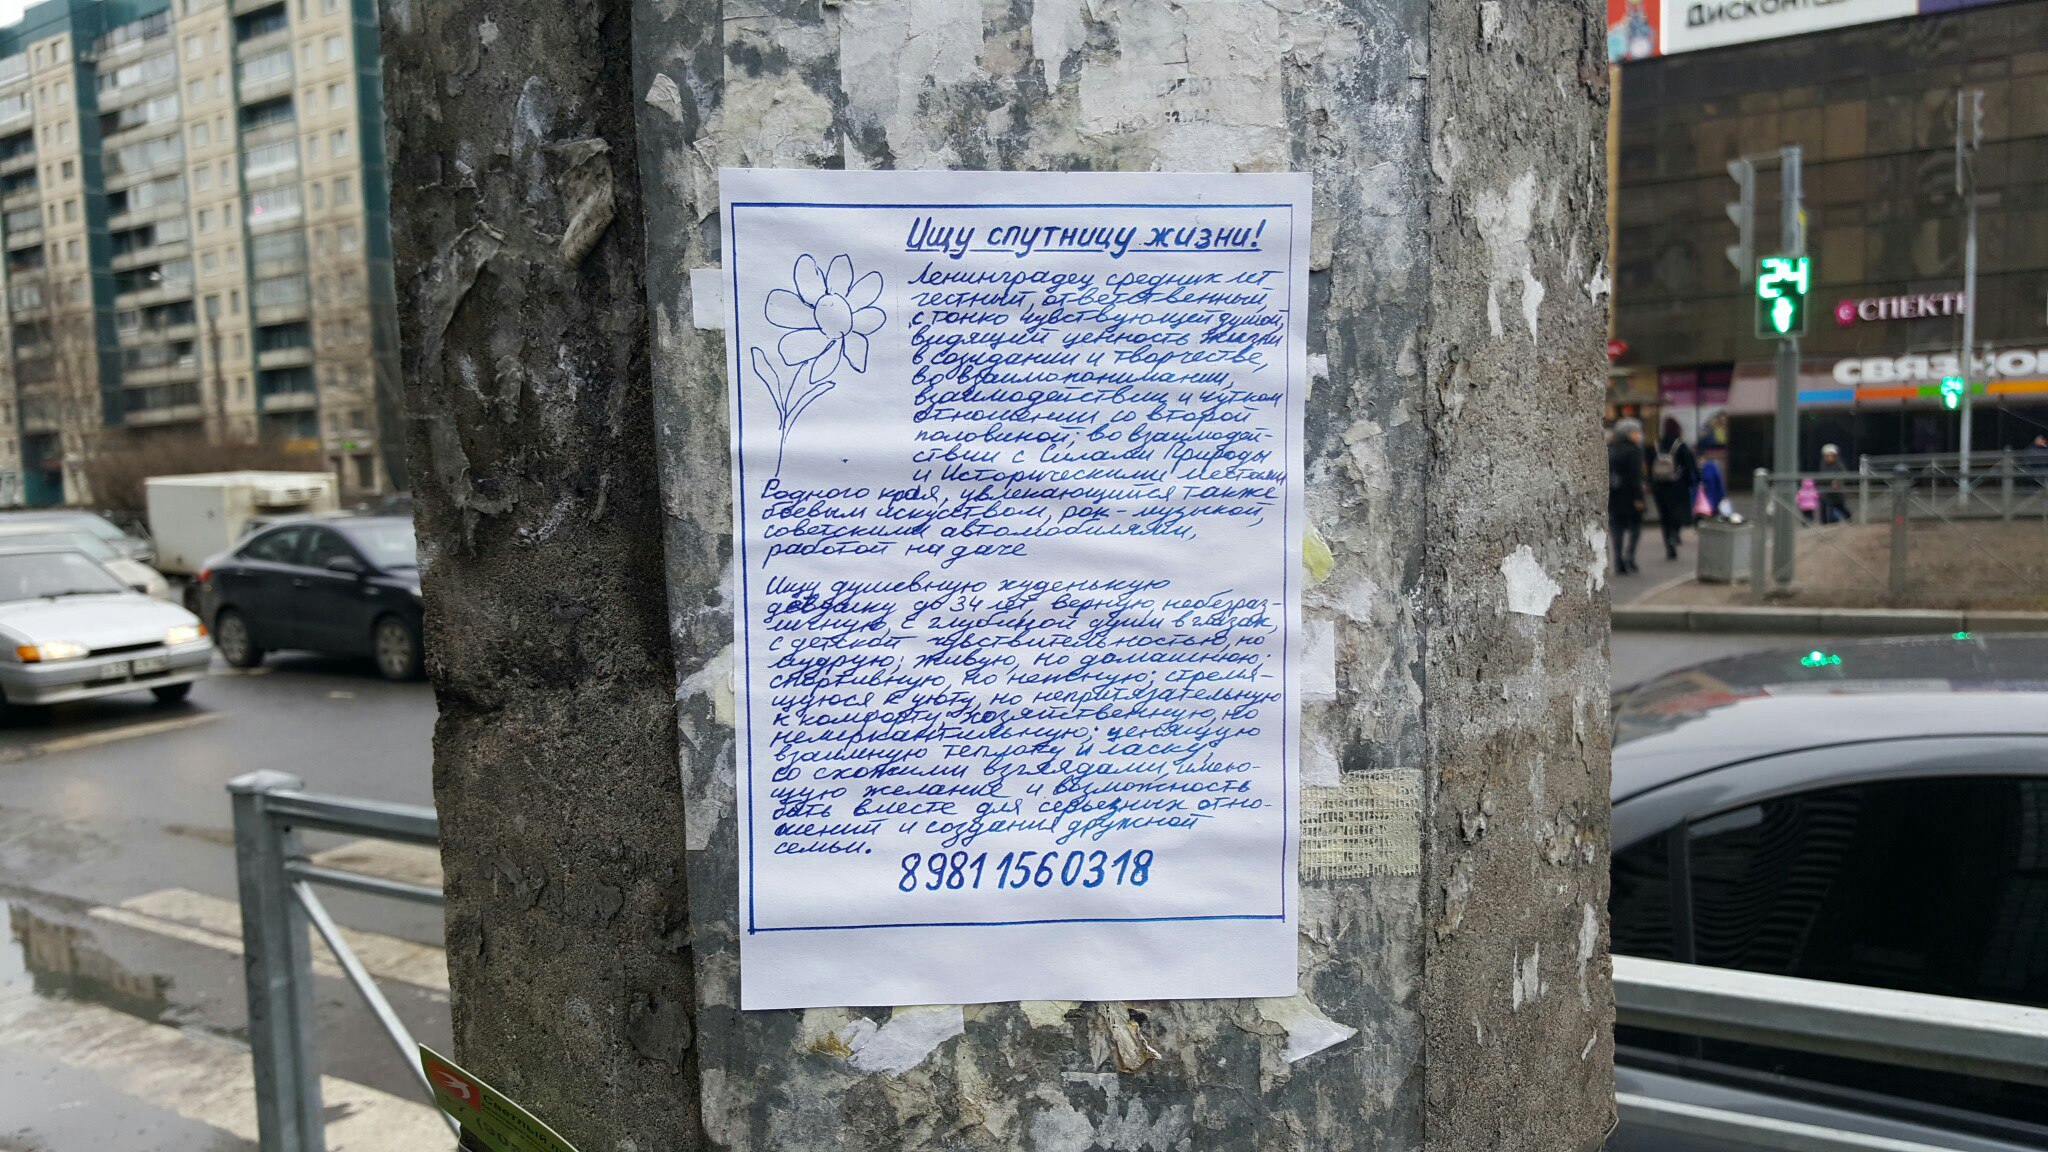 Ищу спутницу жизни!
Ленинградец средних лет
честный, ответственный,
с тонко чувствующей душой,
видящий ценность жизни
в созидании и творчестве,
во взаимопонимании,
взаимодействии и чутком
отношении со второй
половиной; во взаимодей-
ствии с Силами Природы
и Историческими местами
Родного края, увлекающийся также
боевым искусством, рок-музыкой,
советскими автомобилями,
работой на даче
Ищу душевную худенькую
девушку до 34 лет, верную, небезраз-
личную с глубиной души в глазах,
с детской чувствительностью, но
мудрую; живую, но домашнюю;
спортивную, но нежную; стремя-
щуюся к уюту, но непритязательную
к комфорту; хозяйственную, но
немеркантильную; ценящую
взаимную теплоту и ласку;
со схожими взглядами, имею-
щую желание и возможность
быть вместе для серьезных отно-
шений и создания дружной
семьи.
89811560318
24
СПЕКТ
СВЯЗНОЙ
Светлый